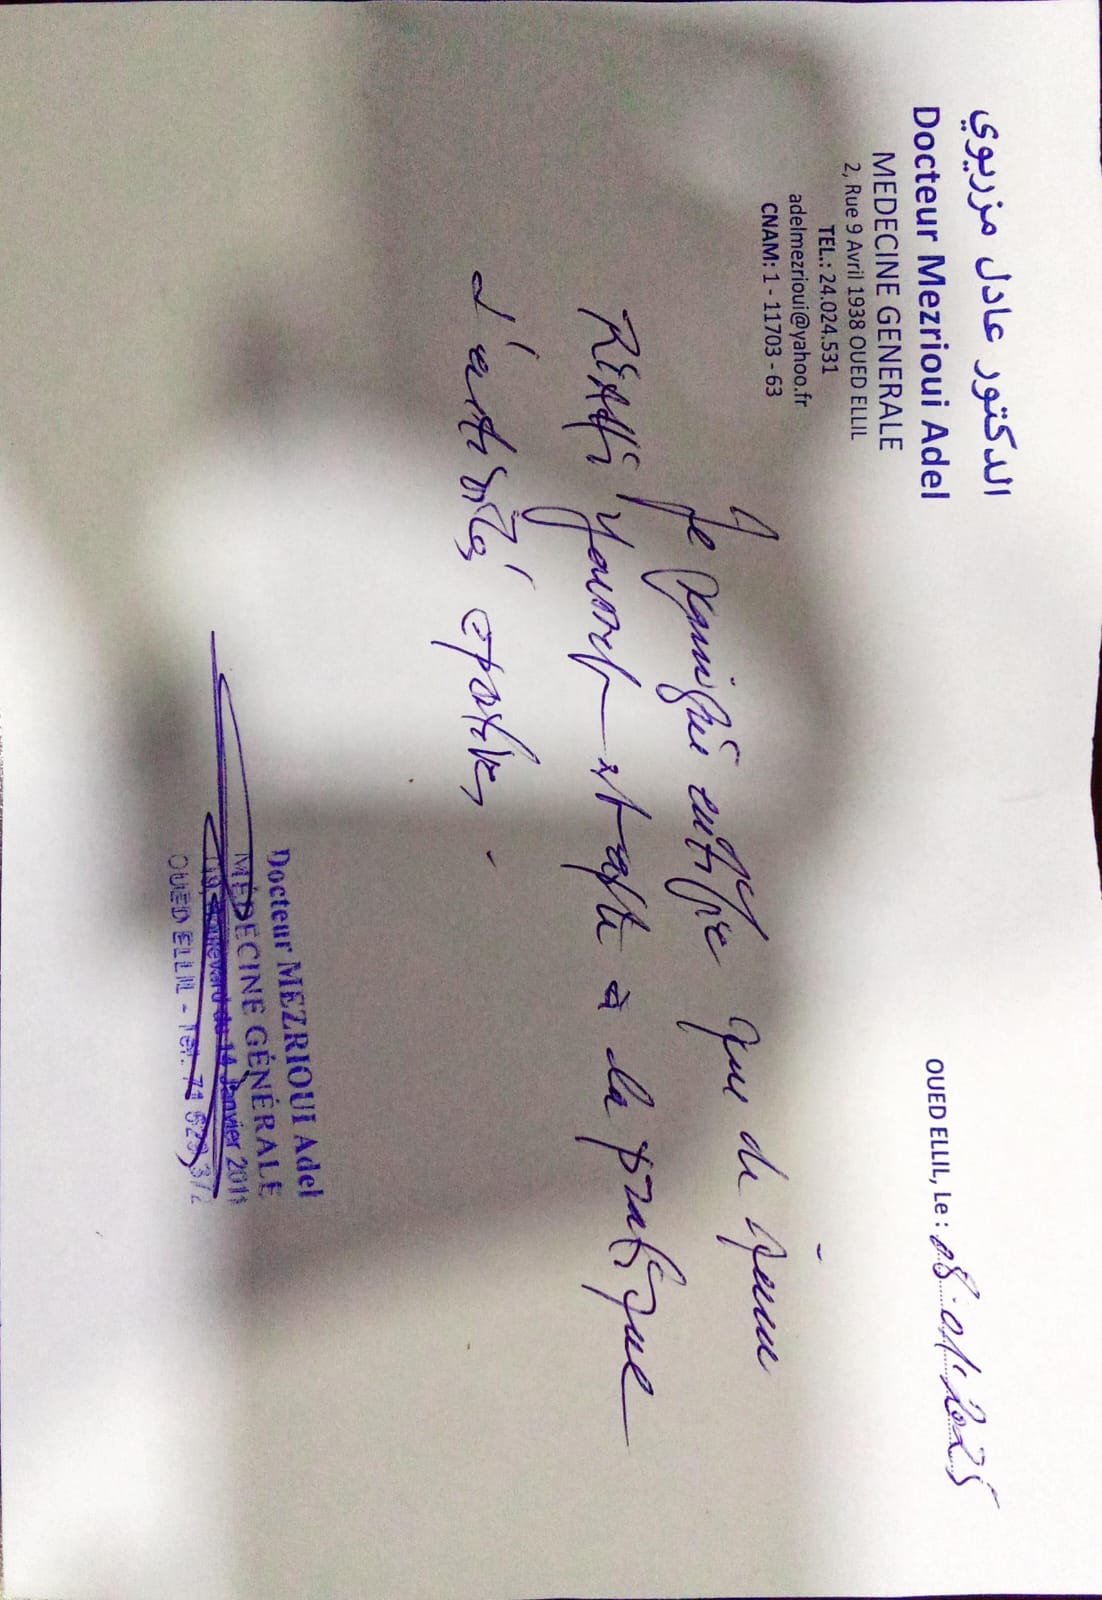 الدكتور عادل مزريوي
Docteur Mezrioui Adel
MEDECINE GENERALE
2, Rue 9 Avril 1938 OUED ELLIL
TEL.: 24.024.531
adelmezrioui@yahoo.fr
CNAM: 1 - 11703 - 63
OUED ELLIL, Le : 08.01.2025
Je soussigné certifie que le jeune
Riahi Youssef est apte à la pratique
d'activité sportive.
Docteur MEZRIOUI Adel
MÉDECINE GÉNÉRALE
Boulevard du 14 Janvier 2011
OUED ELLIL - Tél. 71